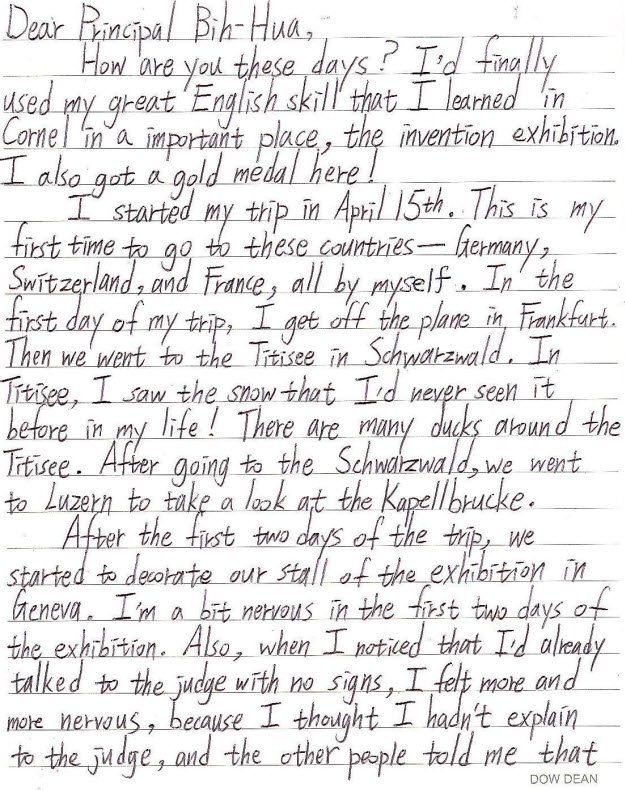 Dear Principal Bih-Hua,
How are you these days? I'd finally
used my great English skill that I learned in
Cornel in a important place, the invention exhibition.
I also got a gold medal here!
I started my trip in April 15th. This is my
first time to go to these countries— Germany,
Switzerland, and France, all by myself. In the
first day of my trip, I get off the plane in Frankfurt.
Then we went to the Titisee in Schwarzwald. In
Titisee, I saw the snow that I'd never seen it
before in my life! There are many ducks around the
Titisee. After going to the Schwarzwald, we went
to Luzern to take a look at the Kapellbrucke.
After the first two days of the trip, we
started to decorate our stall of the exhibition in
Geneva. I'm a bit nervous in the first two days of
the exhibition. Also, when I noticed that I'd already
talked to the judge with no signs, I felt more and
more nervous, because I thought I hadn't explain
to the judge, and the other people told me that
DOW DEAN